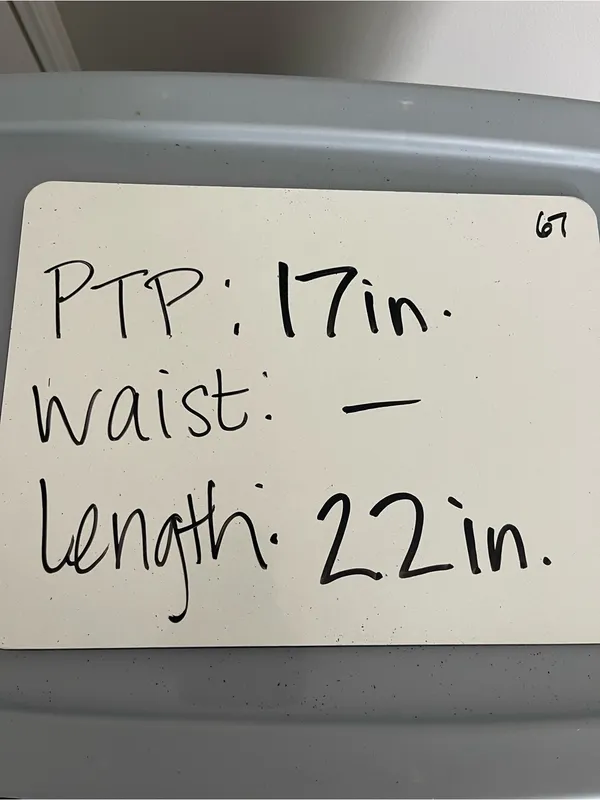 67
PTP: 17in.
waist: —
length: 22in.